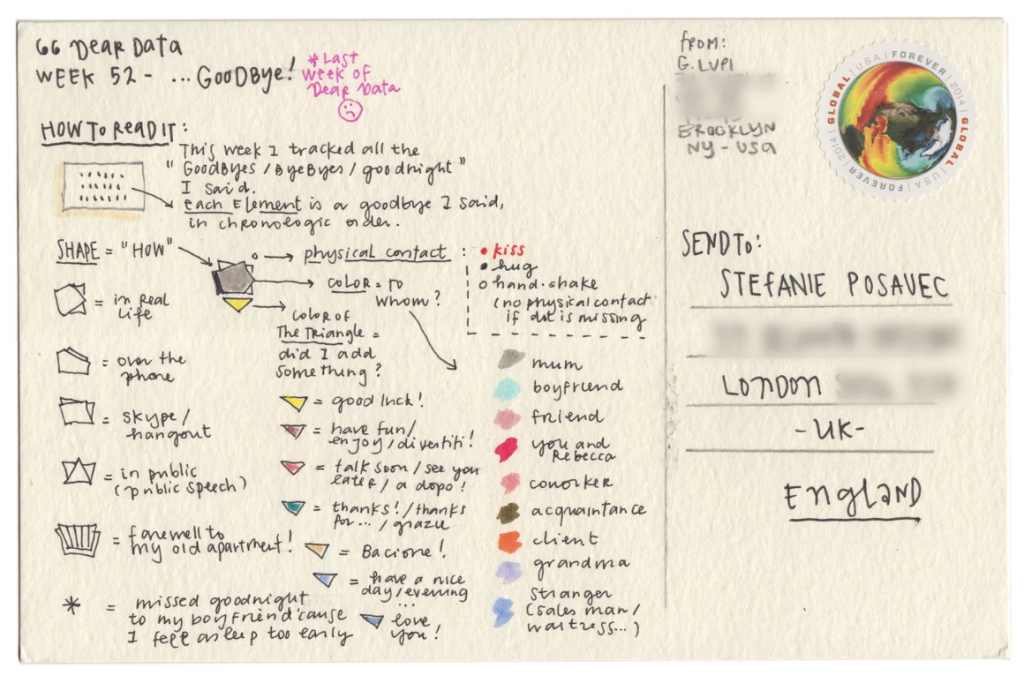 GG DEAR DATA
WEEK 52 - ... GOODBYE!
* LAST
WEEK OF
DEAR DATA
HOW TO READ IT:
THIS WEEK I TRACKED ALL THE
"GOODBYES / BYEBYES / goodnight"
I SAID.
each Element is a goodbye I said,
in chronologic order.
SHAPE = "HOW"
= in real
life
= over the
phone
= SKYPE /
hangout
= in public
(public speech)
= farewell to
my old apartment!
* = missed goodnight
to my boyfriend 'cause
I fell asleep too early
physical contact :
• kiss
• hug
o hand-shake
(no physical contact
if dot is missing
COLOR = TO
WHOM?
COLOR OF
THE TRIANGLE =
did I add
something?
= good luck!
= have fun/
enjoy/divertiti!
= talk soon/see you
later/a dopo!
= thanks!/thanks
for.../grazie
= Bacione!
= have a nice
day/evening
...
= love
you!
mum
boyfriend
friend
you and
Rebecca
coworker
acquaintance
client
grandma
stranger
(sales man/
waitress...)
FROM:
G. LUPI
BROOKLYN
NY - USA
GLOBAL | USA | FOREVER | 2014 | GLOBAL | USA | FOREVER | 2014
SEND TO:
STEFANIE POSAVEC
LONDON
- UK -
ENGLAND